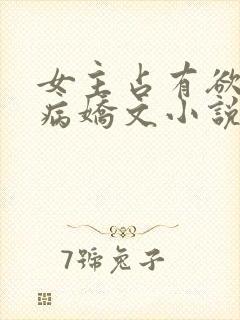 女主占有欲
病嬌文小說
7號兔子